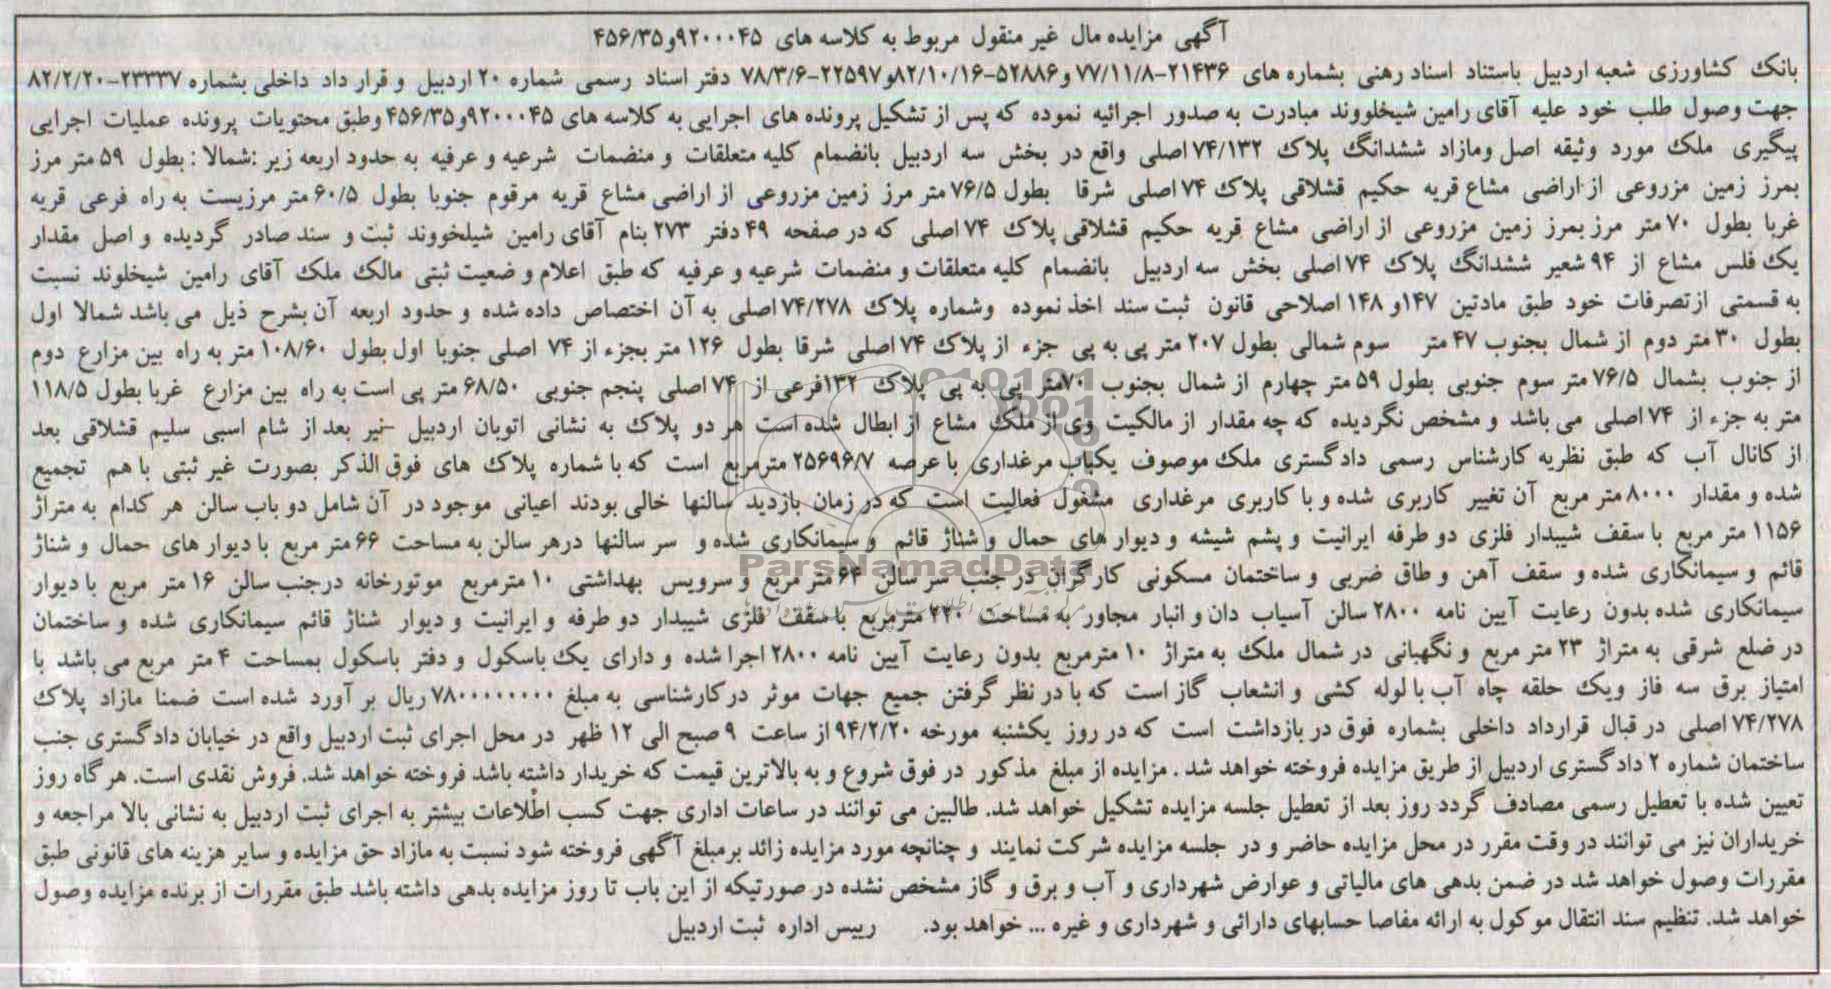 آگهی مزایده مال غیر منقول مربوط به کلاسه های ۹۲۰۰۰۴۵و۴۵۶/۳۵
بانک کشاورزی شعبه اردبیل باستناد اسناد رهنی بشماره های ۲۱۴۳۶-۷۷/۱۱/۸ و۵۲۸۸۶-۸۲/۱۰/۱۶و۲۲۵۹۷-۷۸/۳/۶ دفتر اسناد رسمی شماره ۲۰ اردبیل و قرار داد داخلی بشماره ۲۳۳۳۷-۸۲/۲/۲۰
جهت وصول طلب خود علیه آقای رامین شیخلووند مبادرت به صدور اجرائیه نموده که پس از تشکیل پرونده های اجرایی به کلاسه های ۹۲۰۰۰۴۵و۴۵۶/۳۵ وطبق محتویات پرونده عملیات اجرایی
پیگیری ملک مورد وثیقه اصل ومازاد ششدانگ پلاک ۷۴/۱۳۲ اصلی واقع در بخش سه اردبیل بانضمام کلیه متعلقات و منضمات شرعیه و عرفیه به حدود اربعه زیر :شمالا : بطول ۵۹ متر مرز
بمرز زمین مزروعی از اراضی مشاع قریه حکیم قشلاقی پلاک ۷۴ اصلی شرقا بطول ۷۶/۵ متر مرز زمین مزروعی از اراضی مشاع قریه مرقوم جنوبا بطول ۶۰/۵ متر مرزیست به راه فرعی قریه
غربا بطول ۷۰ متر مرز بمرز زمین مزروعی از اراضی مشاع قریه حکیم قشلاقی پلاک ۷۴ اصلی که در صفحه ۴۹ دفتر ۲۷۳ بنام آقای رامین شیلخووند ثبت و سند صادر گردیده و اصل مقدار
یک فلس مشاع از ۹۴ شعیر ششدانگ پلاک ۷۴ اصلی بخش سه اردبیل بانضمام کلیه متعلقات و منضمات شرعیه و عرفیه که طبق اعلام و ضعیت ثبتی مالک ملک آقای رامین شیخلوند نسبت
به قسمتی ازتصرفات خود طبق مادتین ۱۴۷و ۱۴۸ اصلاحی قانون ثبت سند اخذ نموده وشماره پلاک ۷۴/۲۷۸ اصلی به آن اختصاص داده شده و حدود اربعه آن بشرح ذیل می باشد شمالا اول
بطول ۳۰ متر دوم از شمال بجنوب ۴۷ متر سوم شمالی بطول ۲۰۷ متر پی به پی جزء از پلاک ۷۴ اصلی شرقا بطول ۱۲۶ متر بجزء از ۷۴ اصلی جنوبا اول بطول ۱۰۸/۶۰ متر به راه بین مزارع دوم
از جنوب بشمال ۷۶/۵ متر سوم جنوبی بطول ۵۹ متر چهارم از شمال بجنوب ۷۰متر پی به پی پلاک ۱۳۲فرعی از ۷۴ اصلی پنجم جنوبی ۶۸/۵۰ متر پی است به راه بین مزارع غربا بطول ۱۱۸/۵
متر به جزء از ۷۴ اصلی می باشد و مشخص نگردیده که چه مقدار از مالکیت وی از ملک مشاع از ابطال شده است هر دو پلاک به نشانی اتوبان اردبیل -نیر بعد از شام اسبی سلیم قشلاقی بعد
از کانال آب که طبق نظریه کارشناس رسمی دادگستری ملک موصوف یکباب مرغداری با عرصه ۲۵۶۹۶/۷ مترمربع است که با شماره پلاک های فوق الذکر بصورت غیر ثبتی با هم تجمیع
شده و مقدار ۸۰۰۰ متر مربع آن تغییر کاربری شده و با کاربری مرغداری مشغول فعالیت است که در زمان بازدید سالنها خالی بودند اعیانی موجود در آن شامل دو باب سالن هر کدام به متراژ
۱۱۵۶ متر مربع با سقف شیبدار فلزی دو طرفه ایرانیت و پشم شیشه و دیوار های حمال و شناژ قائم و سیمانکاری شده و سر سالنها درهر سالن به مساحت ۶۶ متر مربع با دیوار های حمال و شناژ
قائم و سیمانکاری شده و سقف آهن و طاق ضربی و ساختمان مسکونی کارگران در جنب سر سالن ۶۴ متر مربع و سرویس بهداشتی ۱۰ مترمربع موتورخانه درجنب سالن ۱۶ متر مربع با دیوار
سیمانکاری شده بدون رعایت آیین نامه ۲۸۰۰ سالن آسیاب دان و انبار مجاور به مساحت ۲۲۰ مترمربع با سقف فلزی شیبدار دو طرفه و ایرانیت و دیوار شناژ قائم سیمانکاری شده و ساختمان
در ضلع شرقی به متراژ ۲۳ متر مربع و نگهبانی در شمال ملک به متراژ ۱۰ مترمربع بدون رعایت آیین نامه ۲۸۰۰ اجرا شده و دارای یک باسکول و دفتر باسکول بمساحت ۴ متر مربع می باشد با
امتیاز برق سه فاز ویک حلقه چاه آب با لوله کشی و انشعاب گاز است که با در نظر گرفتن جمیع جهات موثر درکارشناسی به مبلغ ۷۸۰۰۰۰۰۰۰۰۰ ریال بر آورد شده است ضمنا مازاد پلاک
۷۴/۲۷۸ اصلی در قبال قرارداد داخلی بشماره فوق در بازداشت است که در روز یکشنبه مورخه ۹۴/۲/۲۰ از ساعت ۹ صبح الی ۱۲ ظهر در محل اجرای ثبت اردبیل واقع در خیابان دادگستری جنب
ساختمان شماره ۲ دادگستری اردبیل از طریق مزایده فروخته خواهد شد . مزایده از مبلغ مذکور در فوق شروع و به بالاترین قیمت که خریدار داشته باشد فروخته خواهد شد. فروش نقدی است. هر گاه روز
تعیین شده با تعطیل رسمی مصادف گردد روز بعد از تعطیل جلسه مزایده تشکیل خواهد شد. طالبین می توانند در ساعات اداری جهت کسب اطلاعات بیشتر به اجرای ثبت اردبیل به نشانی بالا مراجعه و
خریداران نیز می توانند در وقت مقرر در محل مزایده حاضر و در جلسه مزایده شرکت نمایند و چنانچه مورد مزایده زائد برمبلغ آگهی فروخته شود نسبت به مازاد حق مزایده و سایر هزینه های قانونی طبق
مقررات وصول خواهد شد در ضمن بدهی های مالیاتی و عوارض شهرداری و آب و برق و گاز مشخص نشده در صورتیکه از این باب تا روز مزایده بدهی داشته باشد طبق مقررات از برنده مزایده وصول
خواهد شد. تنظیم سند انتقال موکول به ارائه مفاصا حسابهای دارائی و شهرداری و غیره ... خواهد بود. رییس اداره ثبت اردبیل
ParsNamadData